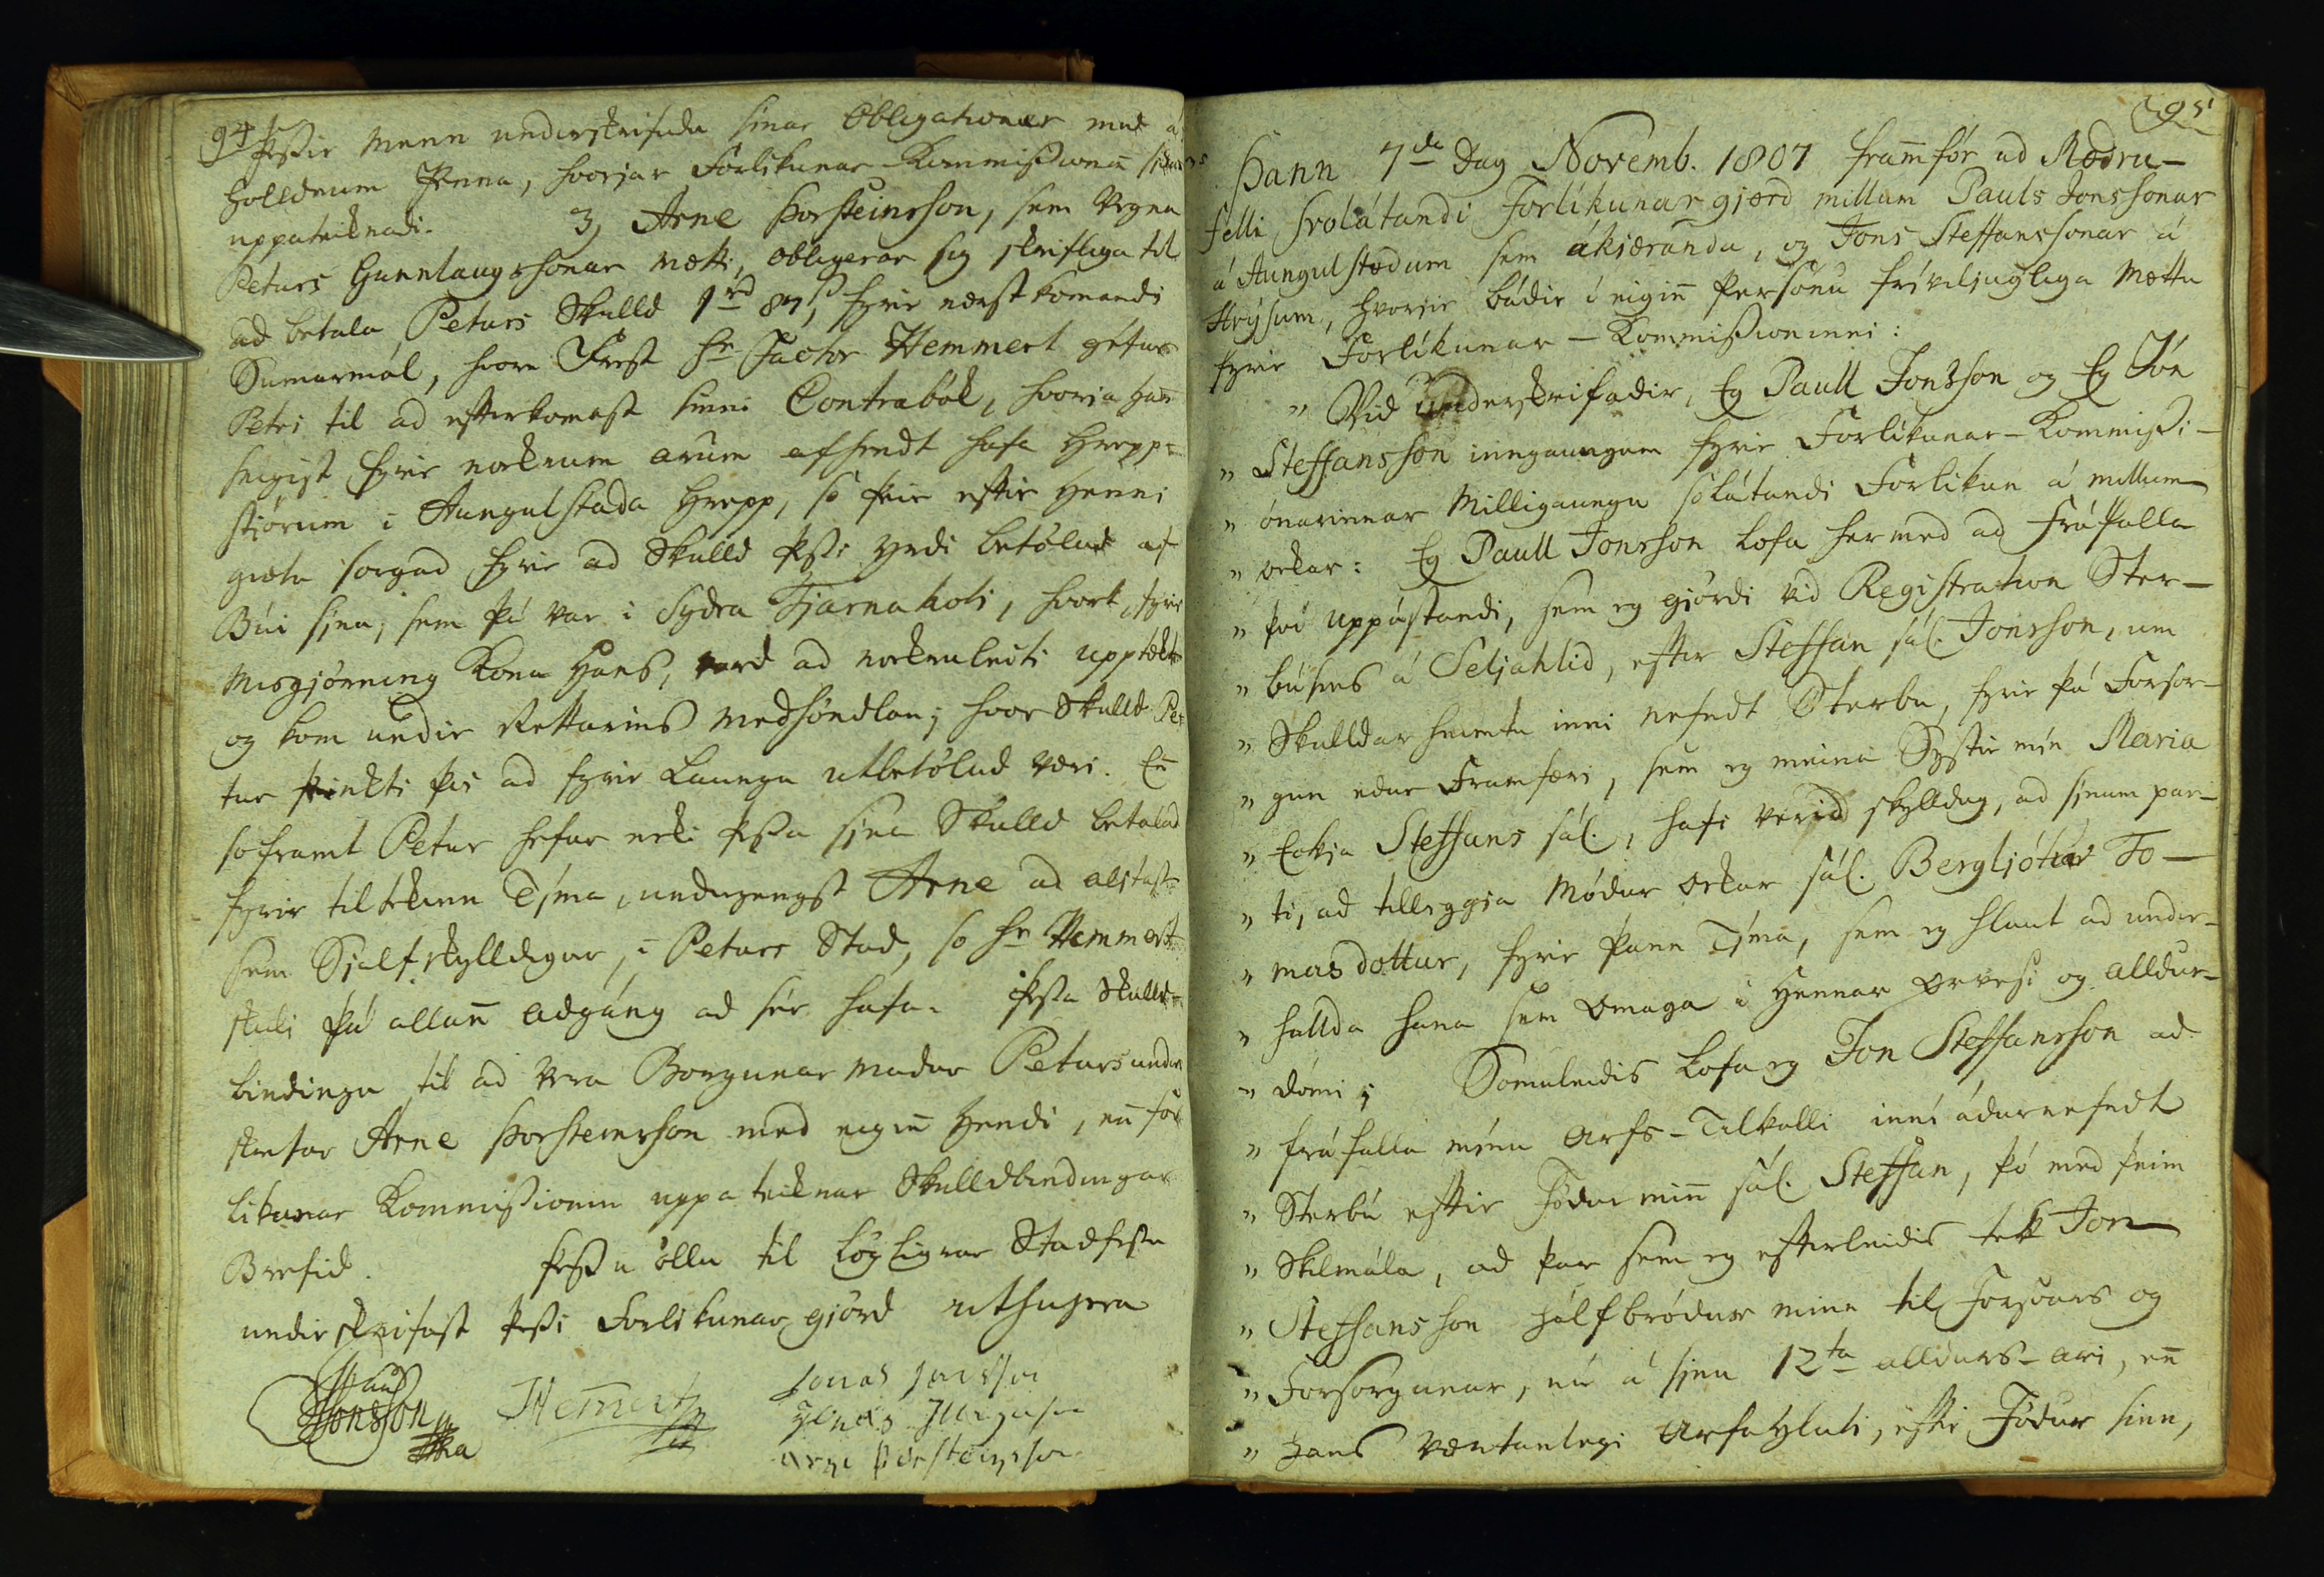 94
þeßir Menn underskrifudu sinar Obligationer med á
holldnum Penna, hvorjar Forlikunar-Kommißionen
uppáteiknadi. 3, Arne Þorsteinsson, sem vegna
Peturs Gunnlaugssonar mætti, obligerar sig skriftlega til
ad betala Peturs Skulld 1rd 87s, fyrir næstkomandi
Sumarmál, hvorn Frest Hr Factor Hemmert géfur
Petri til ad efterkomast sinni Contrabók, hvoria hañ
segist fyrir nockrum arum afhendt hafa Hrepp=
stjórum i Aungulstada Hrepp, so þeir eftir henni
giætu sorgad fyrir ad Skulld þeßi yrdi betölud af
Búi sjnu, sem þá var i Sydra Tjarnakoti, hvort, fyrir
Misgjörning Konu Hans, vard ad nockruleiti upptækt
og kom undir Rettarins medhöndlan; hvor Skulld Pe
tur þeinkti þvi ad fyrir Laungu utbetölud væri. Eñ
soframt Petur hefur ecki þeßa sjna Skulld betalad
fyrir tiltekinn Tjma, undergengst Arne ad alitast
sem Sjalfskylldugur, i Peturs Stad, so Hr Hemmert
skuli þá allañ adgáng ad sér hafa. Þeßa Skulld-
bindingu til ad vera Borgunar Madur Peturs under
skrifar Arne Þorsteinsson med eigiñ Hendi, eñ for
likunar Kommißionin uppáteiknar Skulldbindingar
Brefid. Þeßu öllu til löglegrar Stadfestu
underskrifast þeßi Forlikunar giörd utsupra
Paul
Jonsson
Hemert
Jonas Jonsson
Arne Þorsteinsson
95
Þann 7da Dag Novemb. 1807 frammfór ad Mödru-
felli svolátandi Forlíkunargjörd millum Pauls Jonssonar
á Aungulstödum sem ákiæranda, og Jons Steffanssonar á
Hrýsum, hvorjir bádir i eigiñ Persónu frívíljuglega Mættu
fyrir Forlíkunar-Kommißioninni:
" Vid Underskrifadir, Eg Paull Jonsson og Eg Jón
" Steffansson inngaungum fyrir Forlíkunar-Kommißi-
" ónarinnar Milligaungu sólátandi Forlikun á millum
" ockar: Eg Paull Jonsson lofa hermed ad fráfalla
" því uppástandi, sem eg gjördi vid Registration Ster-
" búsins á Seljahlid, eftir Steffan sál. Jonsson, um
" Skulldar heimtu inni nefndt Sterbu, fyrir þá Forsor-
" gun edur Framfæri, sem eg meina Systir mín Maria
" Eckja Steffans sál., hafi verid skylldug, ad sjnum par-
" ti, ad tilleggia Módur ockar sál. Bergljótar To-
" masdottur, fyrir þann Tjma, sem eg hlaut ad under-
" hallda hana sem Omaga i Hennar Örvesi og alldur-
" dómi; Somuleidis lofa eg Jon Steffansson ad
" fráfalla mínu Arfs-Tilkalli inní ádurnefndt
" Sterbú eftir Födur miñ sál. Steffan, þó med þeim
" Skilmála, ad þar sem eg efterleidis tek Jon
" Steffansson hálfbródur minn til Forsvars og
" Forsorgunar, nú á sjnu 12ta alldurs-ári, eñ
" Hans væntanlegi Arfahluti, eftir Födur sinn,